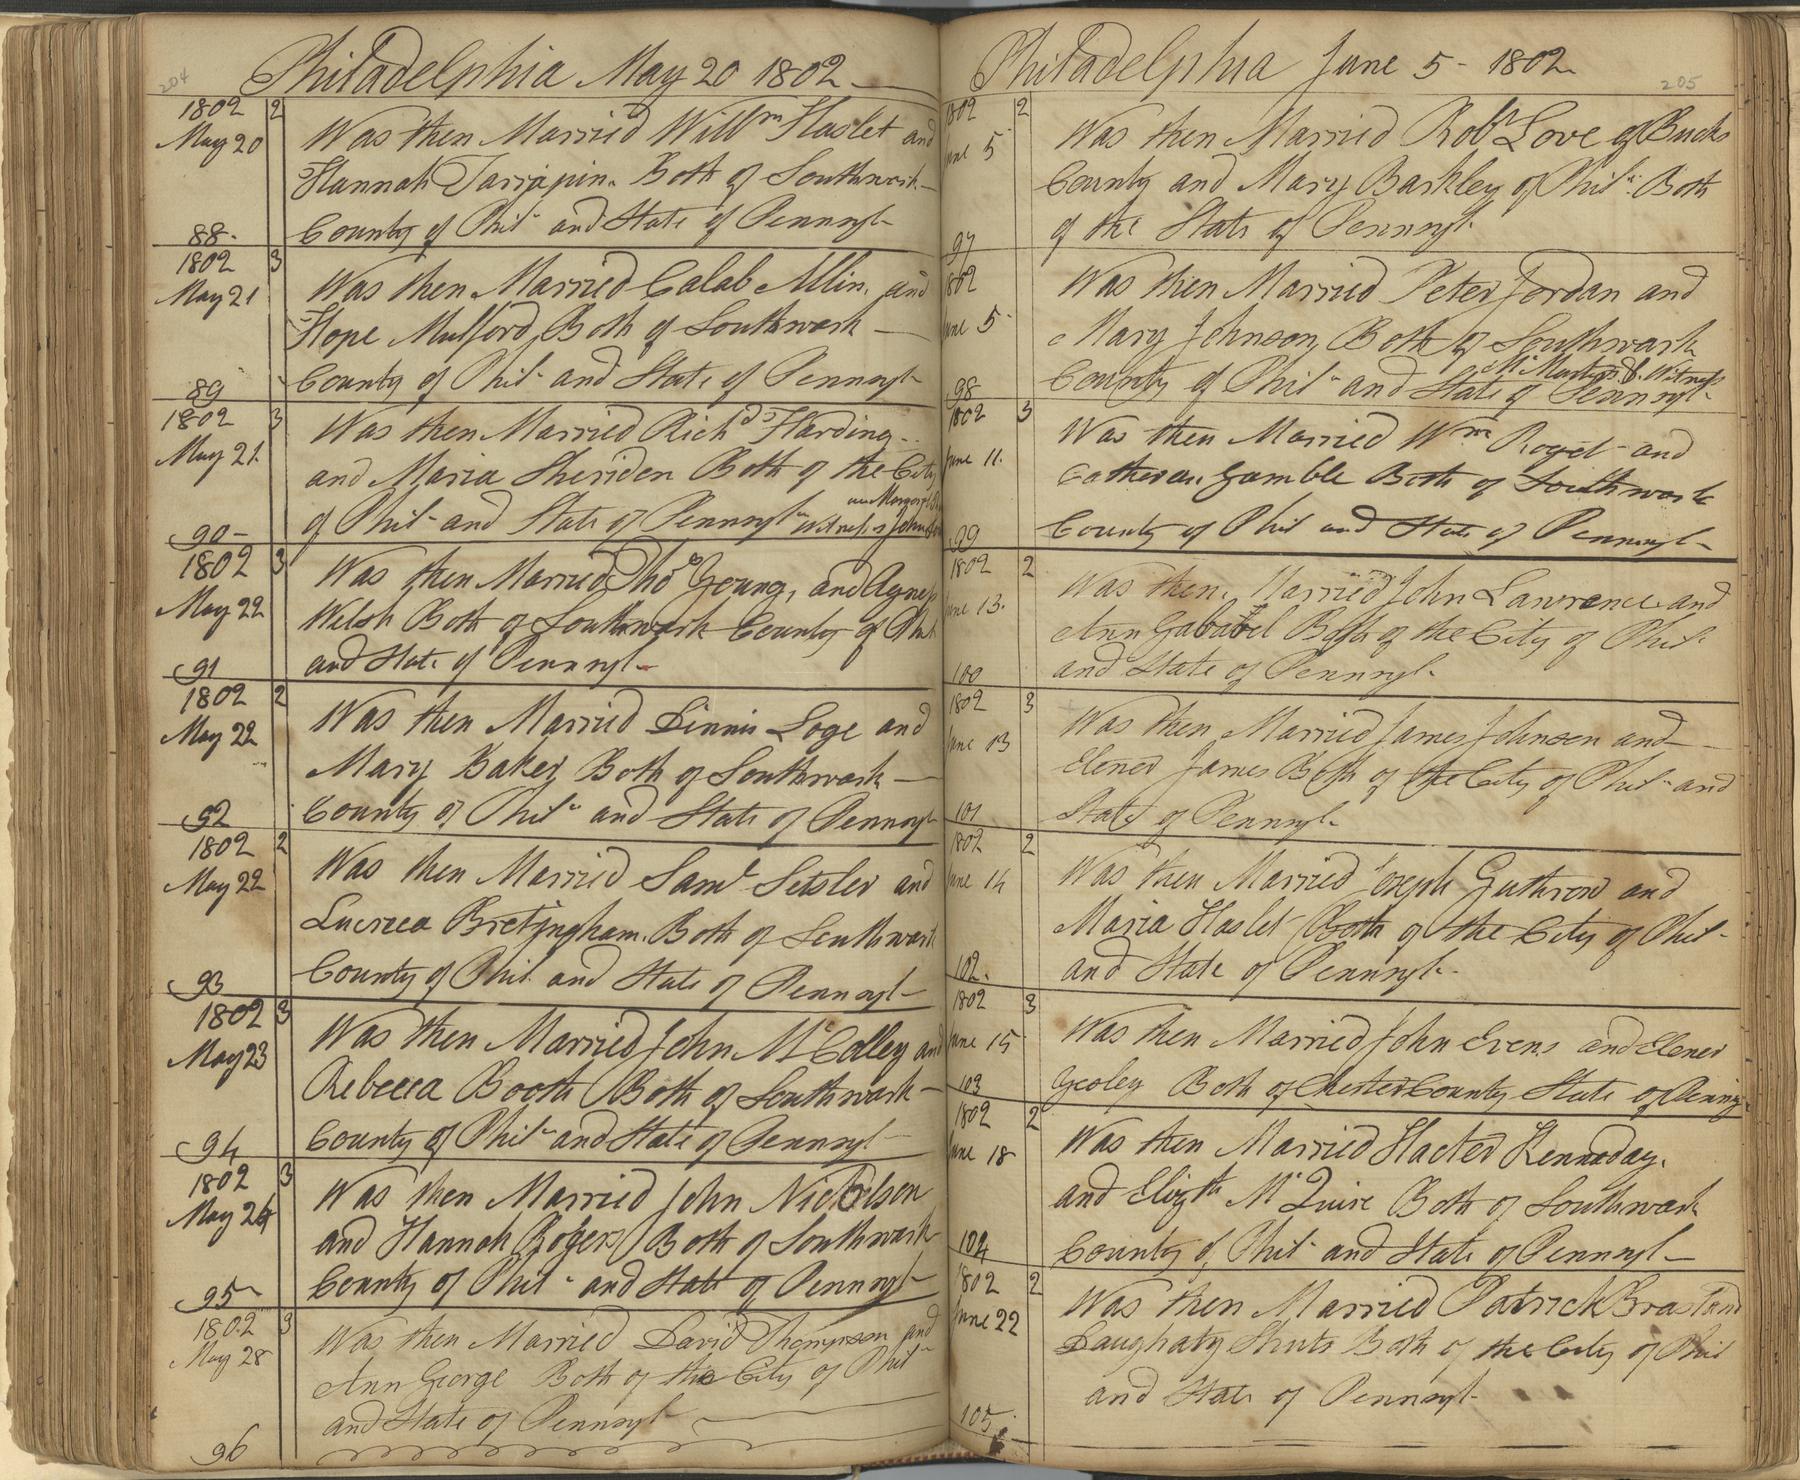 204
Philadelphia May 20 1802
1802 2
May 20
Was then Married Willm Haslet and
Hannah Tarrapin. Both of Southwark
County of Phila and State of Pennsyl
88
1802 3
May 21
Was then Married Calab Allin. and
Hope Mulford Both of Southwark
County of Phila and State of Pennsyl
89
1802 3
May 21.
Was then Married Richd Harding
and Maria Sheriden Both of the City
of Phila and State of Pennsyla witness John
90
1802 3
May 22
Was then Married Thos Young, and Agness
Welsh Both of Southwark County of Phil
and State of Pennsyl
91
1802 2
May 22
Was then Married Dinnis Loge and
Mary Baker Both of Southwark
County of Phila and State of Pennsyl
92
1802 2
May 22
Was then Married Saml Setsler and
Lucrica Bretingham. Both of Southwark
County of Phil and State of Pennsyl
93
1802 3
May 23
Was then Married John McColley and
Rebecca Booth Both of Southwark
County of Phila and State of Pennsyl
94
1802 3
May 24
Was then Married John Nickelson
and Hannah Rogers Both of Southwark
County of Phila and State of Pennsyl
95
1802 3
May 28
Was then Married David Thompson and
Ann George Both of the City of Phila
and State of Pennsyl
96
Philadelphia June 5 - 1802
205
1802 2
June 5
Was then Married Robt Love of Bucks
County and Mary Barkley of Phila. Both
of the State of Pennsyl
97
1802
June 5
Was then Married Peter Jordan and
Mary Johnson Both of Southwark
Witness
County of Phila and State of Pennsyl
98
1802 3
June 11.
Was then Married Wm Roget and
Catheran Gamble Both of Southwark
County of Phil and State of Pennsyl
99
1802 2
June 13.
Was then. Married John Lawrence and
Ann Gababel Both of the City of Phila
and State of Pennsyl
100
1802 3
June 13
Was then Married James Johnson and
Elener James Both of the City of Phila and
State of Pennsyl
101
1802 2
June 14
Was then Married Joseph Guthrow and
Maria Haslet Both of the City of Phil
and State of Pennsyl
102.
1802 3
June 15
Was then Married John Evens and Elener
Yeoley Both of Chester County State of Penny
103
1802 2
June 18
Was then Married Hacter Kennaday.
and Elizth McQuire Both of Southwark
County of Phila and State of Pennsyl
104
1802 2
June 22
Was then Married Patrick and
Daughaty Shuts Both of the City of Phil
and State of Pennsyl
105